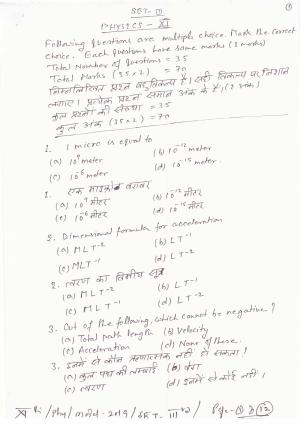 SET- III
①
PHYSICS - XI
Following Questions are multiple choice. Mark the correct
choice. Each Questions have same marks (2 marks)
Total Number of Questions = 35
Total Marks (35×2) = 70
निम्नलिखित प्रश्न बहुविकल्प है। सही विकल्प पर निशान
लगाए। प्रत्येक प्रश्न समान अंक के है। (2 अंक)
कुल प्रश्नों की संख्या = 35
कुल अंक (35×2) = 70
1. 1 micro is equal to
(a) 10⁹ meter (b) 10⁻¹² meter
(c) 10⁻⁶ meter (d) 10⁻¹⁵ meter.
1. एक माइक्रोन बराबर
(a) 10⁹ मीटर (b) 10⁻¹² मीटर
(c) 10⁻⁶ मीटर (d) 10⁻¹⁵ मीटर
2. Dimensional formula for acceleration
(a) MLT⁻² (b) LT⁻¹
(c) MLT⁻¹ (d) LT⁻²
2. त्वरण का विमीय सूत्र
(a) MLT⁻² (b) LT⁻¹
(c) MLT⁻¹ (d) LT⁻²
3. Out of the following, which cannot be negative?
(a) Total path length (b) Velocity
(c) Acceleration (d) None of these.
3. इनमें से कौन ऋणात्मक नहीं हो सकता?
(a) कुल पथ की लम्बाई (b) वेग
(c) त्वरण (d) इनमें से कोई नहीं।
XI / Phy / वार्षिक - 2019 / SET - III